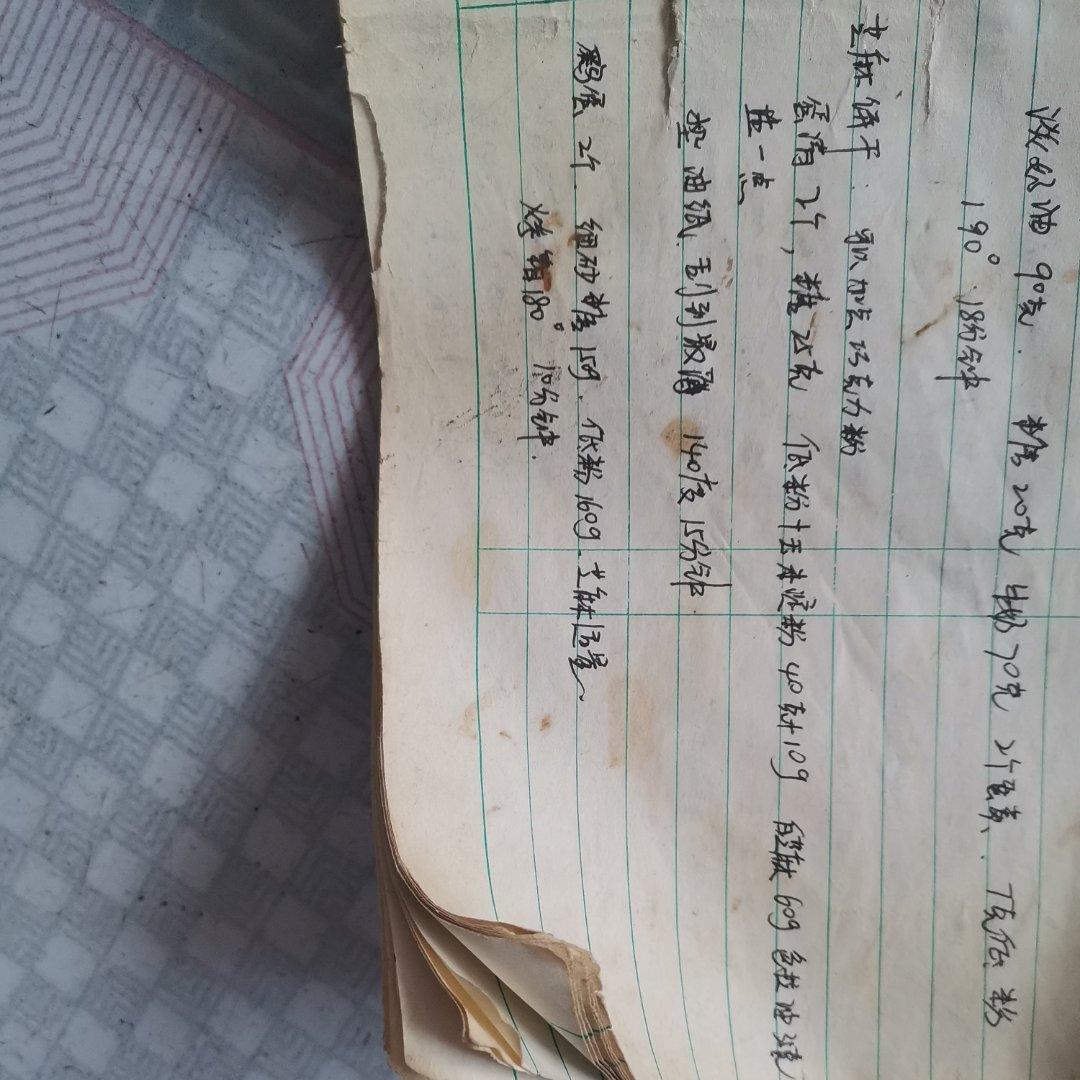 淡奶油 90克. 糖20克 牛奶70克 2个蛋黄. 7克低粉
190° 18分钟
芝麻饼干. 可以加点巧克力粉
蛋清2个, 糖25克 低粉+玉米淀粉 40克+10g 白芝麻60g 色拉油35克
盐一点
垫油纸, 刮到最薄 140度 15分钟.
鸡蛋2个. 细砂糖15g. 低粉160g. 芝麻适量
烤箱180° 10分钟.